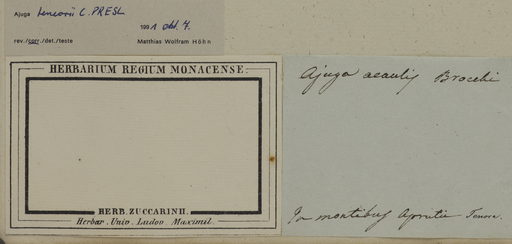 Ajuga tenorii C. PRESL
1991 Okt. 7.
rev./corr./det./teste Matthias Wolfram Höhn
HERBARIUM REGIUM MONACENSE.
HERB. ZUCCARINII.
Herbar. Univ. Ludov. Maximil.
Ajuga acaulis Brocchi
In montibus Aprutii Tenore.